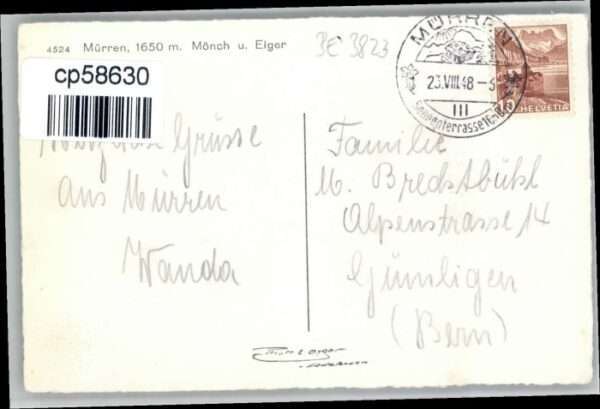 4524 Mürren, 1650 m. Mönch u. Eiger
BE 3823
cp58630
MÜRREN
23.VIII.48
III
Sonnenterrasse
HELVETIA
Grüsse
aus Mürren
Wanda
Familie
M. Brechtbühl
Alpenstrasse 14
Gümligen
(Bern)